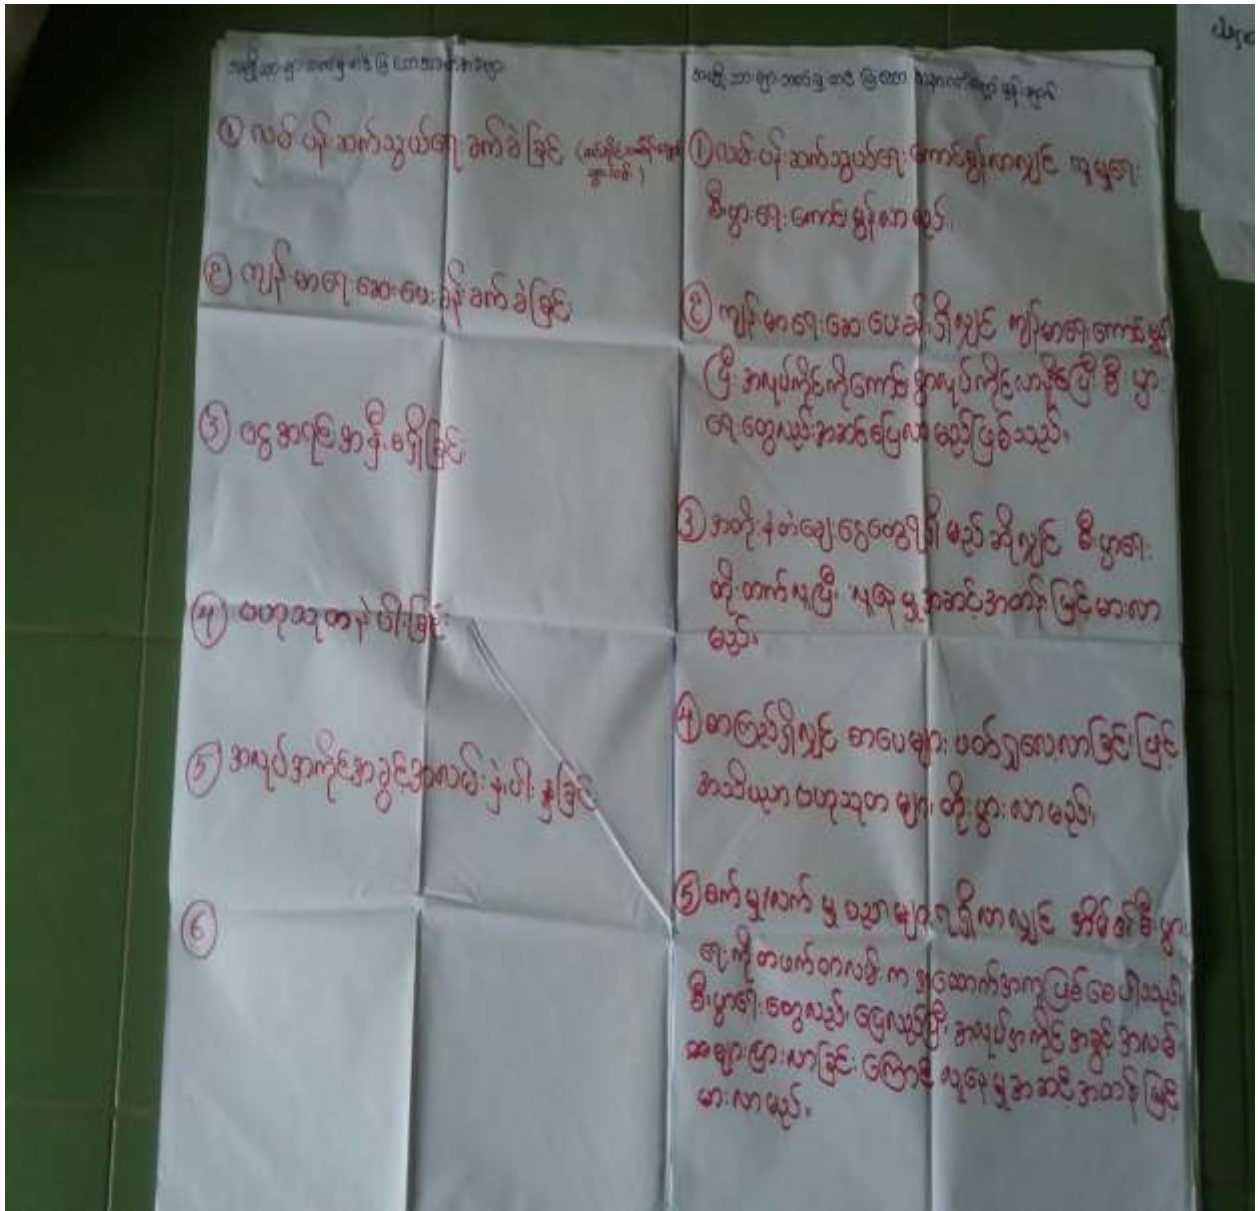 အမျိုးသားများ
① လမ်းပန်းဆက်သွယ်ရေးခက်ခဲခြင်း
② ကျန်းမာရေးဆေးပေးခန်းခက်ခဲခြင်း
③ ငွေအရင်းအနှီးမရှိခြင်း
④ ဗဟုသုတနဲပါးခြင်း
⑤ အလုပ်အကိုင်အခွင့်အလမ်းနဲပါး
⑥
အမျိုးသားများ
① လမ်းပန်းဆက်သွယ်ရေးကောင်းမွန်လာလျှင် လူမှုရေး
စီးပွားရေးကောင်းမွန်လာမည်။
② ကျန်းမာရေးဆေးပေးခန်းရှိလျှင် ကျန်းမာရေးကောင်းမွန်
ပြီး အလုပ်ကိုင်ကိုကောင်းစွာလုပ်ကိုင်လာနိုင်ပြီးစီးပွာ
ရေးတွေလည်းအဆင်ပြေလာမည်ဖြစ်သည်။
③ အတိုးနဲတဲ့ချေးငွေတွေရရှိမည်ဆိုလျှင် စီးပွာရေး
တိုးတက်လာပြီး လူနေမှုအဆင့်အတန်းမြင့်မားလာ
မည်။
④ စာကြည့်ရှိလျှင် စာပေများဖတ်ရှုလေ့လာခြင်းဖြင့်
အသိပညာဗဟုသုတများတိုးပွားလာမည်။
⑤ စက်မှု/လက်မှုပညာများရရှိလာလျှင် အိမ်၏စီးပွား
ရေးကိုတဖက်တလမ်းကအထောက်အကူဖြစ်စေပါသည်။
စီးပွာရေးတွေလည်းပြေလည်ပြီး အလုပ်အကိုင်အခွင့်အလမ်း
များပြားလာခြင်းကြောင့်လူနေမှုအဆင့်အတန်းမြင့်
မားလာမည်။